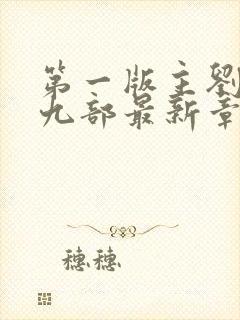 第一版主劉
九部最新章
穗穗